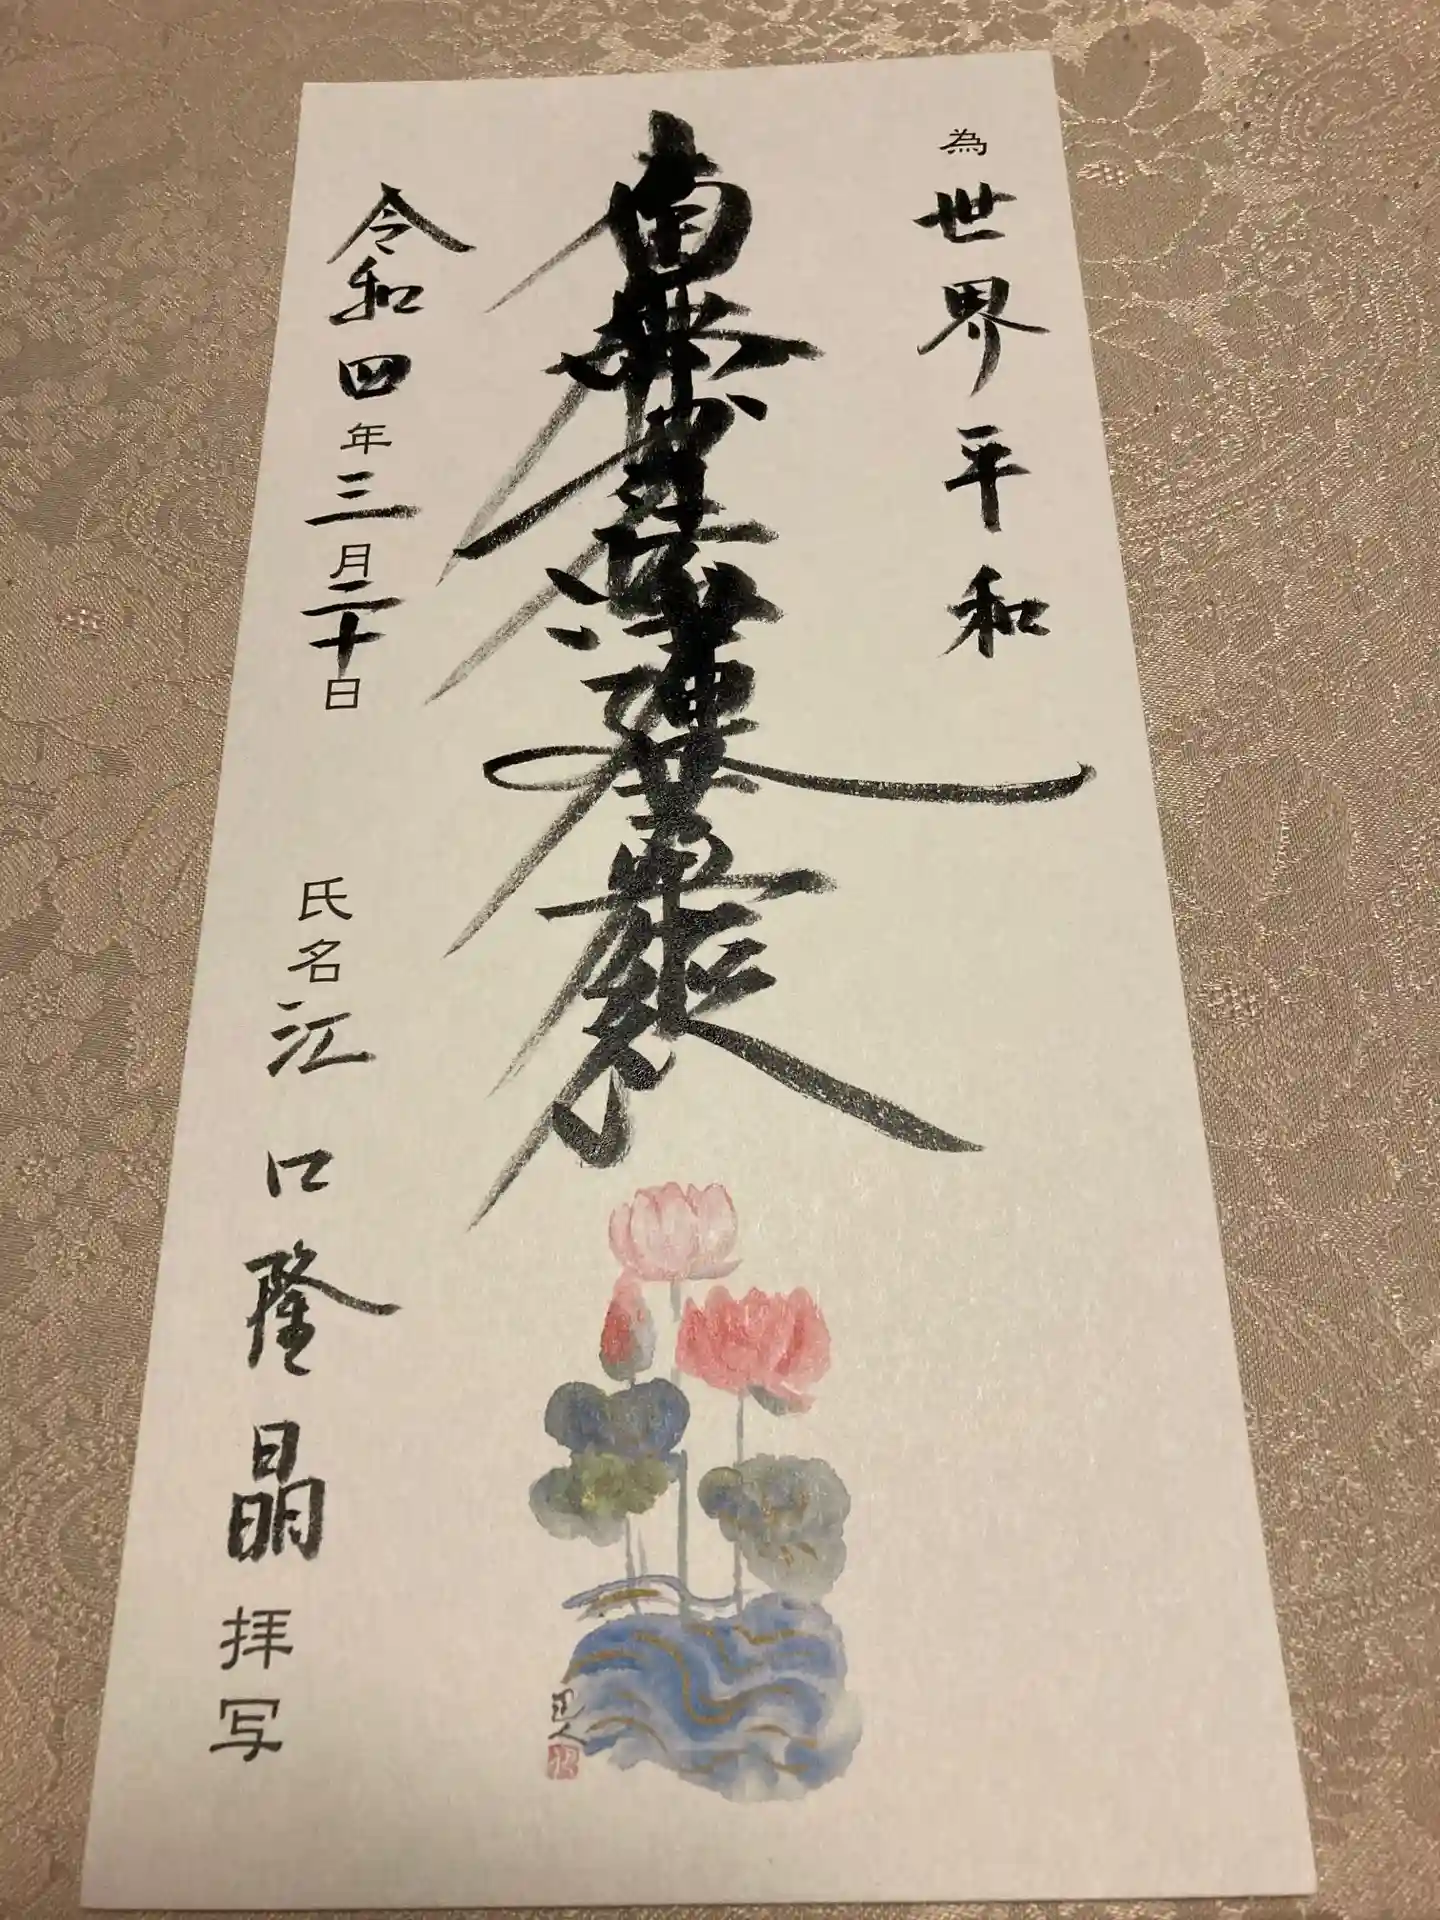 為 世界平和
南無妙法蓮華経
令和四年三月二十日 氏名 江口隆晶 拝写